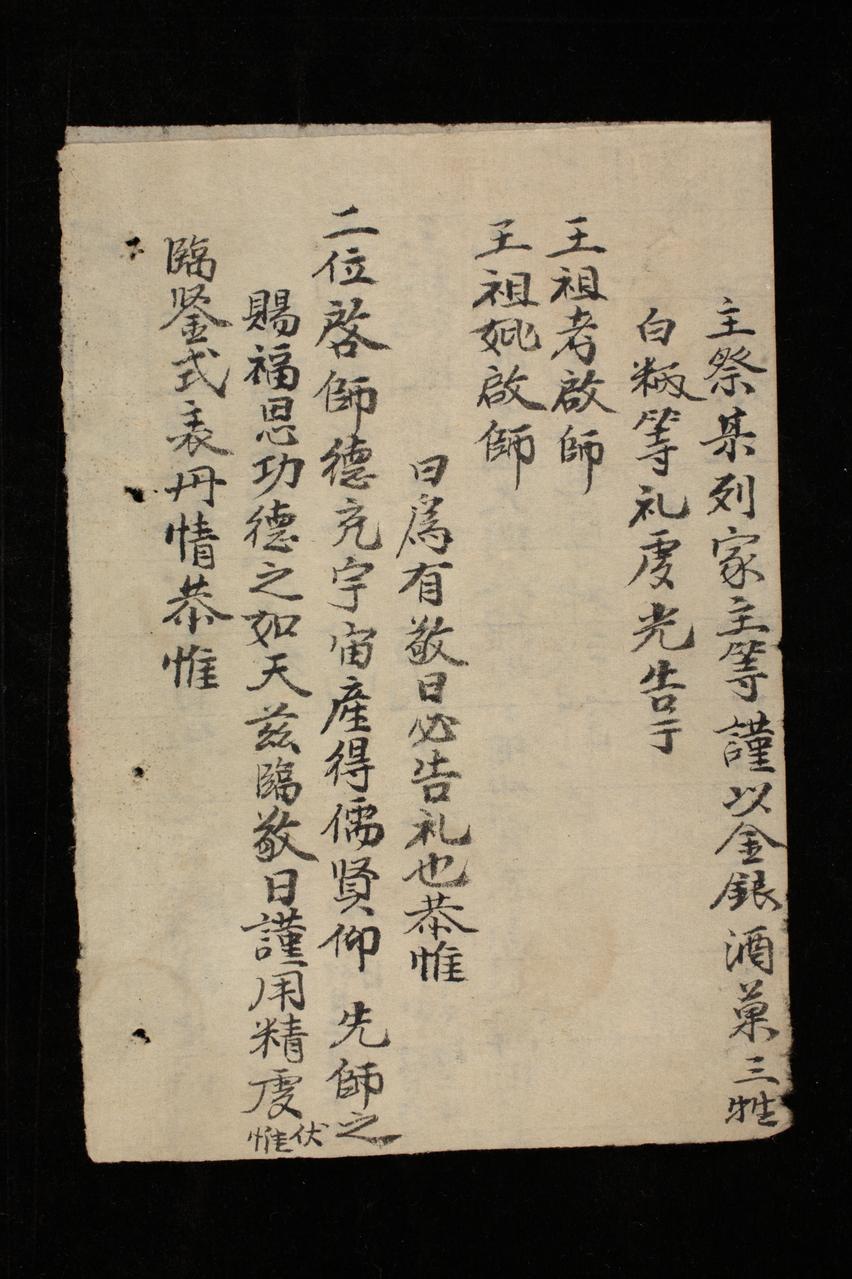 主祭某列家主等謹以金銀酒菓三牲
白粫等礼虔光告于
王祖考啟師
王祖妣啟師
曰爲有敬日必告礼也恭惟
二位啓師德充宇宙產得儒賢仰先師之
賜福恩功德之如天兹臨敬日謹用精虔伏惟
臨鉴式表丹情恭惟